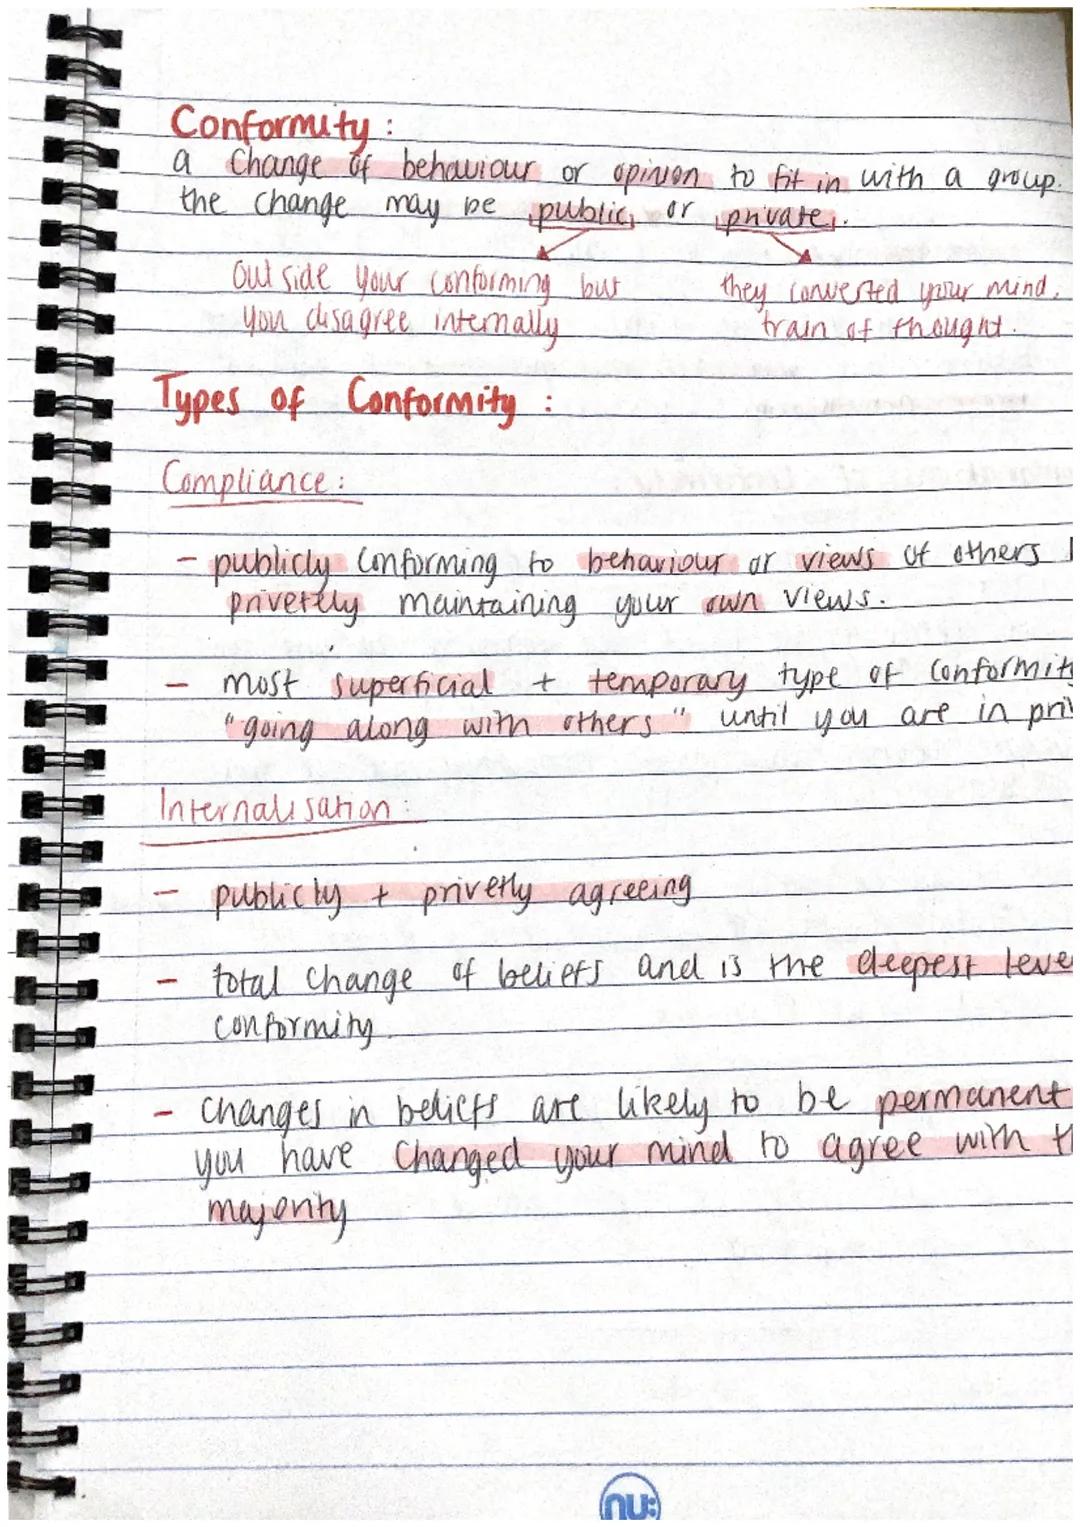 Conformity:
a change of behaviour or opinion to fit in with a group.
the change may be public, or private.
outside your conforming but
you disagree internally
they converted your mind,
train of thought.
Types of Conformity:
Compliance:
- publicly conforming to behaviour or views of others
privetely maintaining your own views.
- most superficial + temporary type of conformity
"going along with others" until you are in priv
Internalisation:
- publicly + privetly agreeing
- total change of beliefs and is the deepest leve
conformity.
- changes in beliefs are likely to be permanent
you have changed your mind to agree with th
majority
nu: